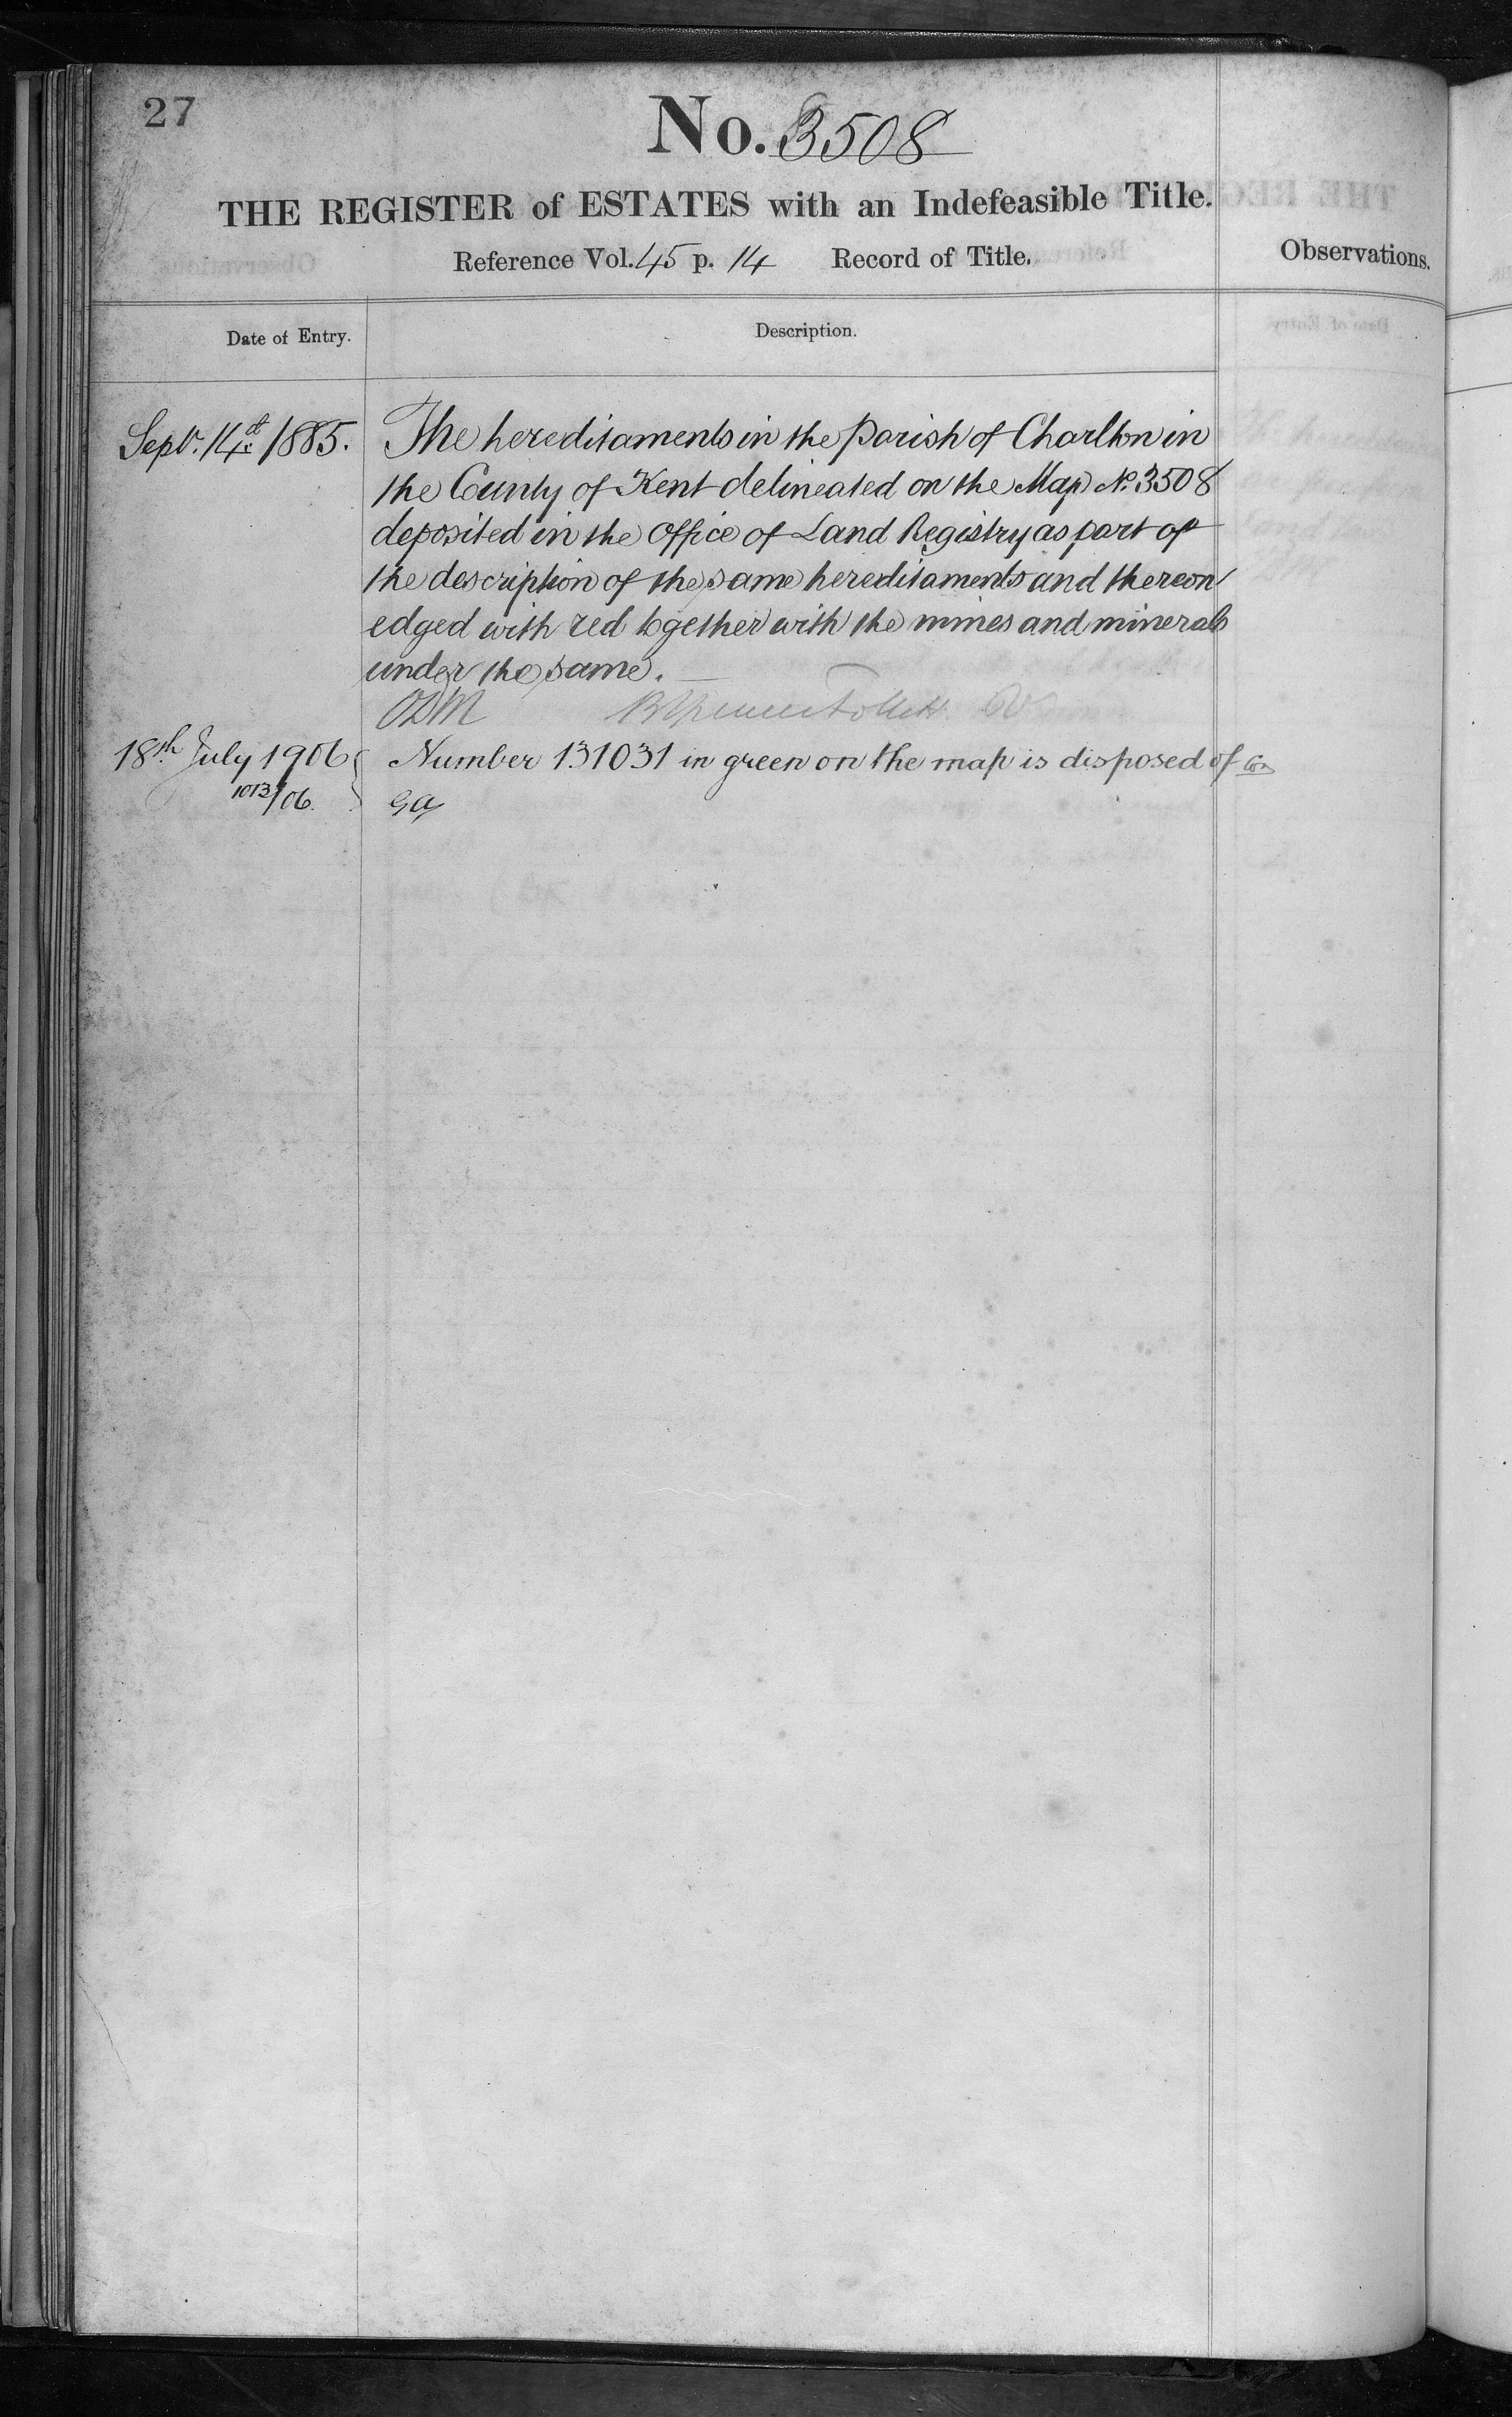 27
No. 3508
THE REGISTER of ESTATES with an Indefeasible Title.
Reference Vol. 45 p. 14 Record of Title.
Observations.
Date of Entry.
Description.
Sept. 14th 1885.
The hereditaments in the Parish of Charlton in
the County of Kent delineated on the Map No. 3508
deposited in the Office of Land Registry as part of
the description of the same hereditaments and thereon
edged with red together with the mines and minerals
under the same.
18th July 1906
1013/06.
Number 131031 in green on the map is disposed of